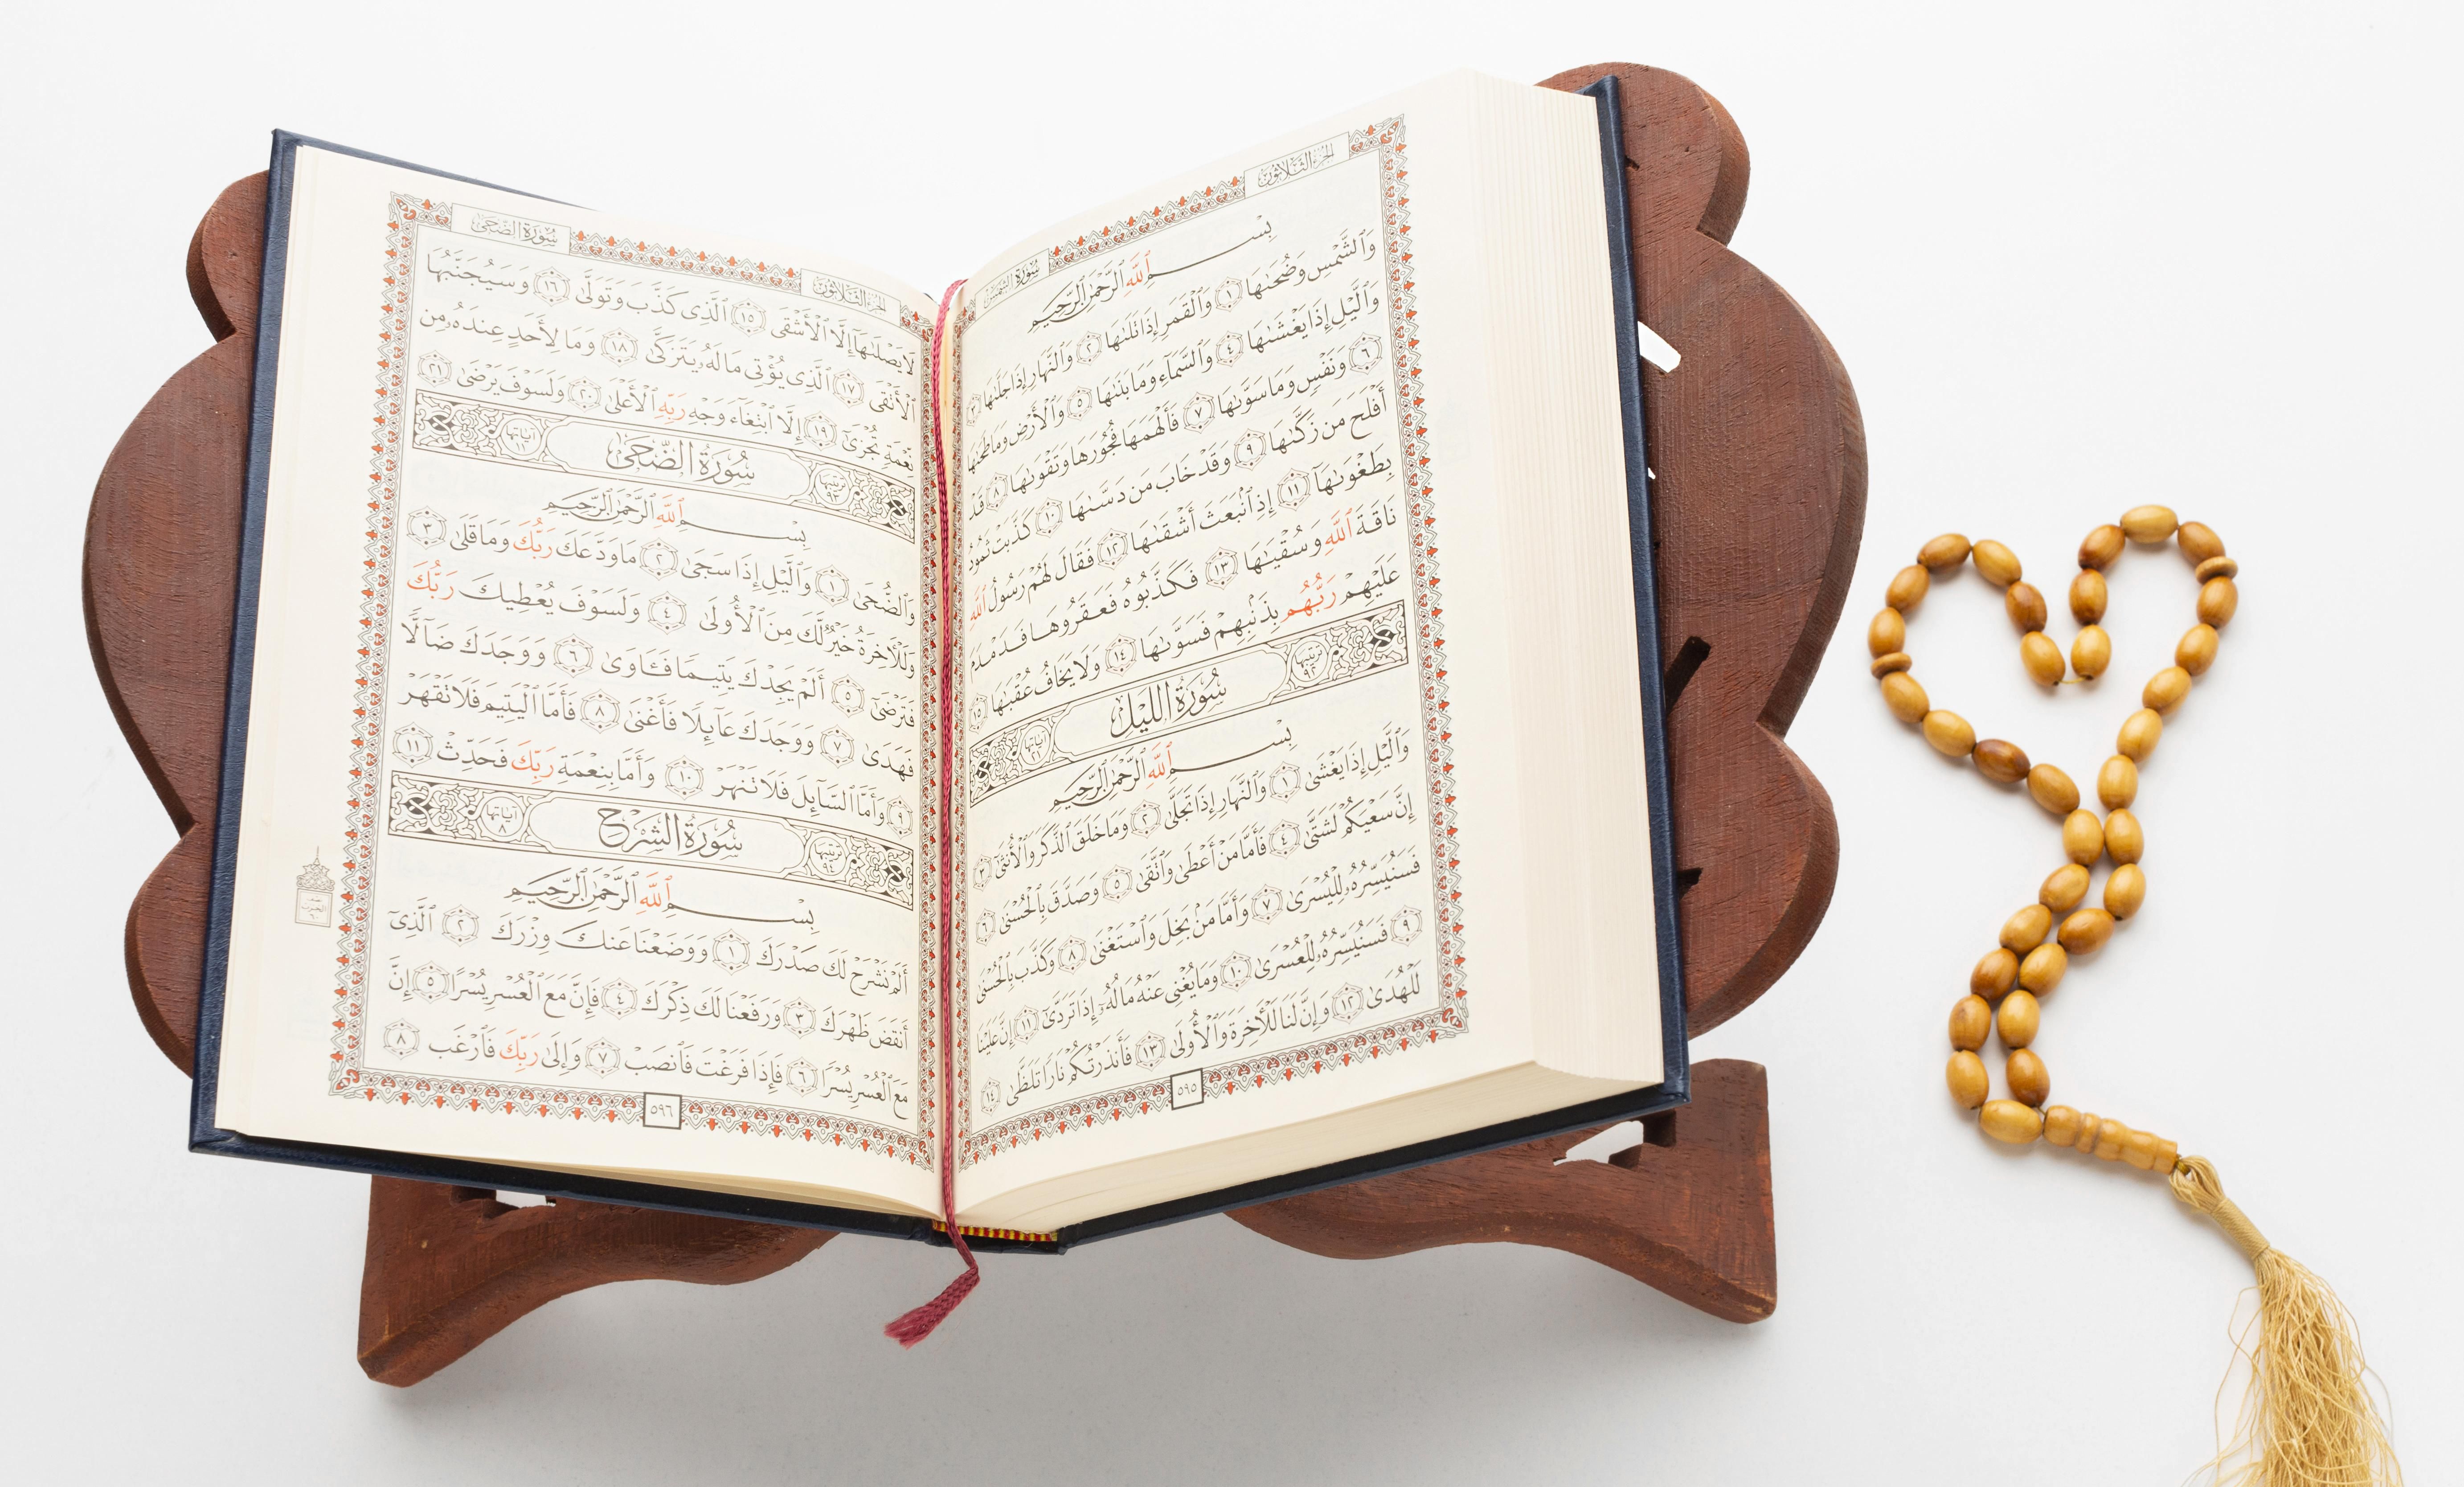 الجزء الثلاثون
سورة الشمس
بسم الله الرحمن الرحيم
وَٱلشَّمْسِ وَضُحَىٰهَا ١ وَٱلْقَمَرِ إِذَا تَلَىٰهَا ٢ وَٱلنَّهَارِ إِذَا جَلَّىٰهَا ٣
وَٱلَّيْلِ إِذَا يَغْشَىٰهَا ٤ وَٱلسَّمَآءِ وَمَا بَنَىٰهَا ٥ وَٱلْأَرْضِ وَمَا طَحَىٰهَا
٦ وَنَفْسٍ وَمَا سَوَّىٰهَا ٧ فَأَلْهَمَهَا فُجُورَهَا وَتَقْوَىٰهَا ٨ قَدْ
أَفْلَحَ مَن زَكَّىٰهَا ٩ وَقَدْ خَابَ مَن دَسَّىٰهَا ١٠ كَذَّبَتْ ثَمُودُ
بِطَغْوَىٰهَآ ١١ إِذِ ٱنۢبَعَثَ أَشْقَىٰهَا ١٢ فَقَالَ لَهُمْ رَسُولُ ٱللَّهِ
نَاقَةَ ٱللَّهِ وَسُقْيَـٰهَا ١٣ فَكَذَّبُوهُ فَعَقَرُوهَا فَدَمْدَمَ
عَلَيْهِمْ رَبُّهُم بِذَنۢبِهِمْ فَسَوَّىٰهَا ١٤ وَلَا يَخَافُ عُقْبَـٰهَا ١٥
ترتيبها ٩٢ سورة الليل آياتها ٢١
بسم الله الرحمن الرحيم
وَٱلَّيْلِ إِذَا يَغْشَىٰ ١ وَٱلنَّهَارِ إِذَا تَجَلَّىٰ ٢ وَمَا خَلَقَ ٱلذَّكَرَ وَٱلْأُنثَىٰٓ ٣
إِنَّ سَعْيَكُمْ لَشَتَّىٰ ٤ فَأَمَّا مَنْ أَعْطَىٰ وَٱتَّقَىٰ ٥ وَصَدَّقَ بِٱلْحُسْنَىٰ ٦
فَسَنُيَسِّرُهُۥ لِلْيُسْرَىٰ ٧ وَأَمَّا مَنۢ بَخِلَ وَٱسْتَغْنَىٰ ٨ وَكَذَّبَ بِٱلْحُسْنَىٰ
٩ فَسَنُيَسِّرُهُۥ لِلْعُسْرَىٰ ١٠ وَمَا يُغْنِى عَنْهُ مَالُهُۥٓ إِذَا تَرَدَّىٰٓ ١١ إِنَّ عَلَيْنَا
لَلْهُدَىٰ ١٢ وَإِنَّ لَنَا لَلْأَخِرَةَ وَٱلْأُولَىٰ ١٣ فَأَنذَرْتُكُمْ نَارًا تَلَظَّىٰ ١٤
٥٩٥
الجزء الثلاثون
سورة الضحى
لَا يَصْلَىٰهَآ إِلَّا ٱلْأَشْقَى ١٥ ٱلَّذِى كَذَّبَ وَتَوَلَّىٰ ١٦ وَسَيُجَنَّبُهَا
ٱلْأَتْقَى ١٧ ٱلَّذِى يُؤْتِى مَالَهُۥ يَتَزَكَّىٰ ١٨ وَمَا لِأَحَدٍ عِندَهُۥ مِن
نِّعْمَةٍ تُجْزَىٰٓ ١٩ إِلَّا ٱبْتِغَآءَ وَجْهِ رَبِّهِ ٱلْأَعْلَىٰ ٢٠ وَلَسَوْفَ يَرْضَىٰ ٢١
ترتيبها ٩٣ سورة الضحى آياتها ١١
بسم الله الرحمن الرحيم
وَٱلضُّحَىٰ ١ وَٱلَّيْلِ إِذَا سَجَىٰ ٢ مَا وَدَّعَكَ رَبُّكَ وَمَا قَلَىٰ ٣
وَلَلْأَخِرَةُ خَيْرٌ لَّكَ مِنَ ٱلْأُولَىٰ ٤ وَلَسَوْفَ يُعْطِيكَ رَبُّكَ
فَتَرْضَىٰٓ ٥ أَلَمْ يَجِدْكَ يَتِيمًا فَـَٔاوَىٰ ٦ وَوَجَدَكَ ضَآلًّا
فَهَدَىٰ ٧ وَوَجَدَكَ عَآئِلًا فَأَغْنَىٰ ٨ فَأَمَّا ٱلْيَتِيمَ فَلَا تَقْهَرْ
٩ وَأَمَّا ٱلسَّآئِلَ فَلَا تَنْهَرْ ١٠ وَأَمَّا بِنِعْمَةِ رَبِّكَ فَحَدِّثْ ١١
ترتيبها ٩٤ سورة الشرح آياتها ٨
بسم الله الرحمن الرحيم
أَلَمْ نَشْرَحْ لَكَ صَدْرَكَ ١ وَوَضَعْنَا عَنكَ وِزْرَكَ ٢ ٱلَّذِىٓ
أَنقَضَ ظَهْرَكَ ٣ وَرَفَعْنَا لَكَ ذِكْرَكَ ٤ فَإِنَّ مَعَ ٱلْعُسْرِ يُسْرًا ٥ إِنَّ
مَعَ ٱلْعُسْرِ يُسْرًا ٦ فَإِذَا فَرَغْتَ فَٱنصَبْ ٧ وَإِلَىٰ رَبِّكَ فَٱرْغَب ٨
٥٩٦